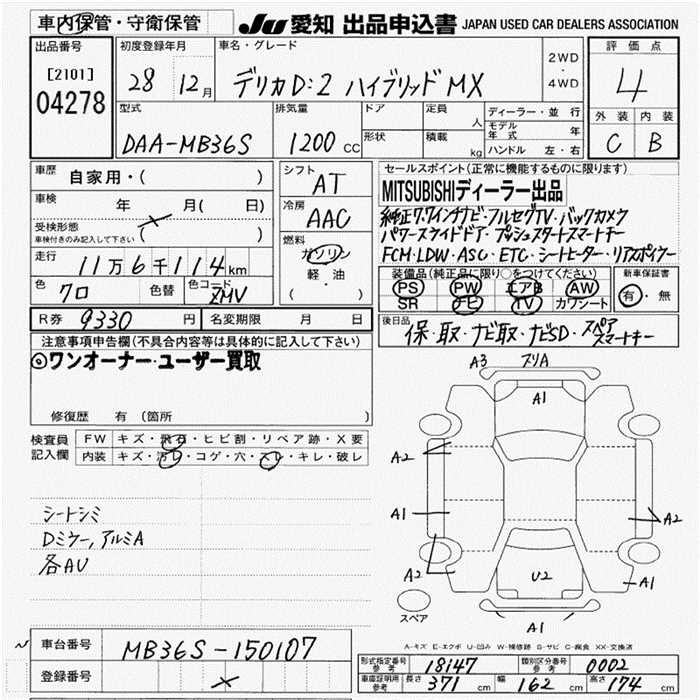 車内保管・守衛保管
JU 愛知 出品申込書 JAPAN USED CAR DEALERS ASSOCIATION
出品番号
[2101]
04278
初度登録年月
28 12月
車名・グレード
デリカD:2 ハイブリッド MX
2WD
・
4WD
評価点
4
外装 内装
C B
型式
DAA-MB36S
排気量
1200 cc
ドア
形状
定員
人
積載
kg
ディーラー・並行
モデル年式 年
ハンドル 左・右
車歴
自家用・( )
車検
年 月( 日)
受検形態
車検付きのみ記入して下さい ( )
走行
11万6千114km
色
クロ
色替
色コード
ZMV
シフト
AT
冷房
AAC
燃料
ガソリン
軽油
( )
セールスポイント(正常に機能するものに限ります)
MITSUBISHIディーラー出品
純正7.7インチナビ・フルセグTV・バックカメラ
パワースライドドア・プッシュスタートスマートキー
FCM・LDW・ASC・ETC・シートヒーター・リアスポイラー
装備品(純正品に限り○をつけてください)
PS PW エアB AW
SR ナビ TV カワシート
新車保証書
有・無
R券 9330 円
名変期限 月 日
後日品
保・取・ナビ取・ナビSD・スペアスマートキー
注意事項申告欄(不具合内容等は具体的に記入して下さい)
◎ワンオーナー・ユーザー買取
修復歴 有 (箇所 )
検査員記入欄
FW キズ・飛石・ヒビ割・リペア跡・X要
内装 キズ・汚レ・コゲ・穴・スレ・キレ・破レ
シートシミ
Dミラー,アルミA
各AU
A3 スリA
A1
A2
A1
A2
A2
U2
A1
A1
スペア
A-キズ E-エクボ U-凹み W-補修跡 S-サビ C-腐食 XX-交換済
車台番号
MB36S-150107
登録番号
型式指定番号 参考 18147
類別区分番号 参考 0002
車庫証明用 参考 長さ 371 cm 幅 162 cm 高さ 174 cm